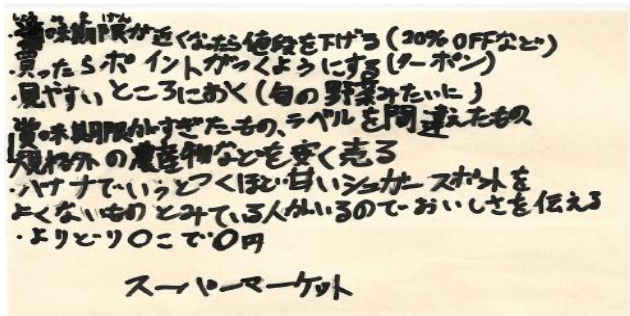 ・賞味期限が近くなったら値段を下げる(20% OFFなど)
買ったらポイントがつくようにする(クーポン)
・見やすいところにおく(旬の野菜みたいに)
賞味期限がすぎたもの、ラベルを間違えたもの
規格外の農産物などを安く売る
・バナナでいうとつくほど甘いシュガースポットを
よくないものとみている人がいるのでおいしさを伝える
・よりどり〇こで〇円
スーパーマーケット